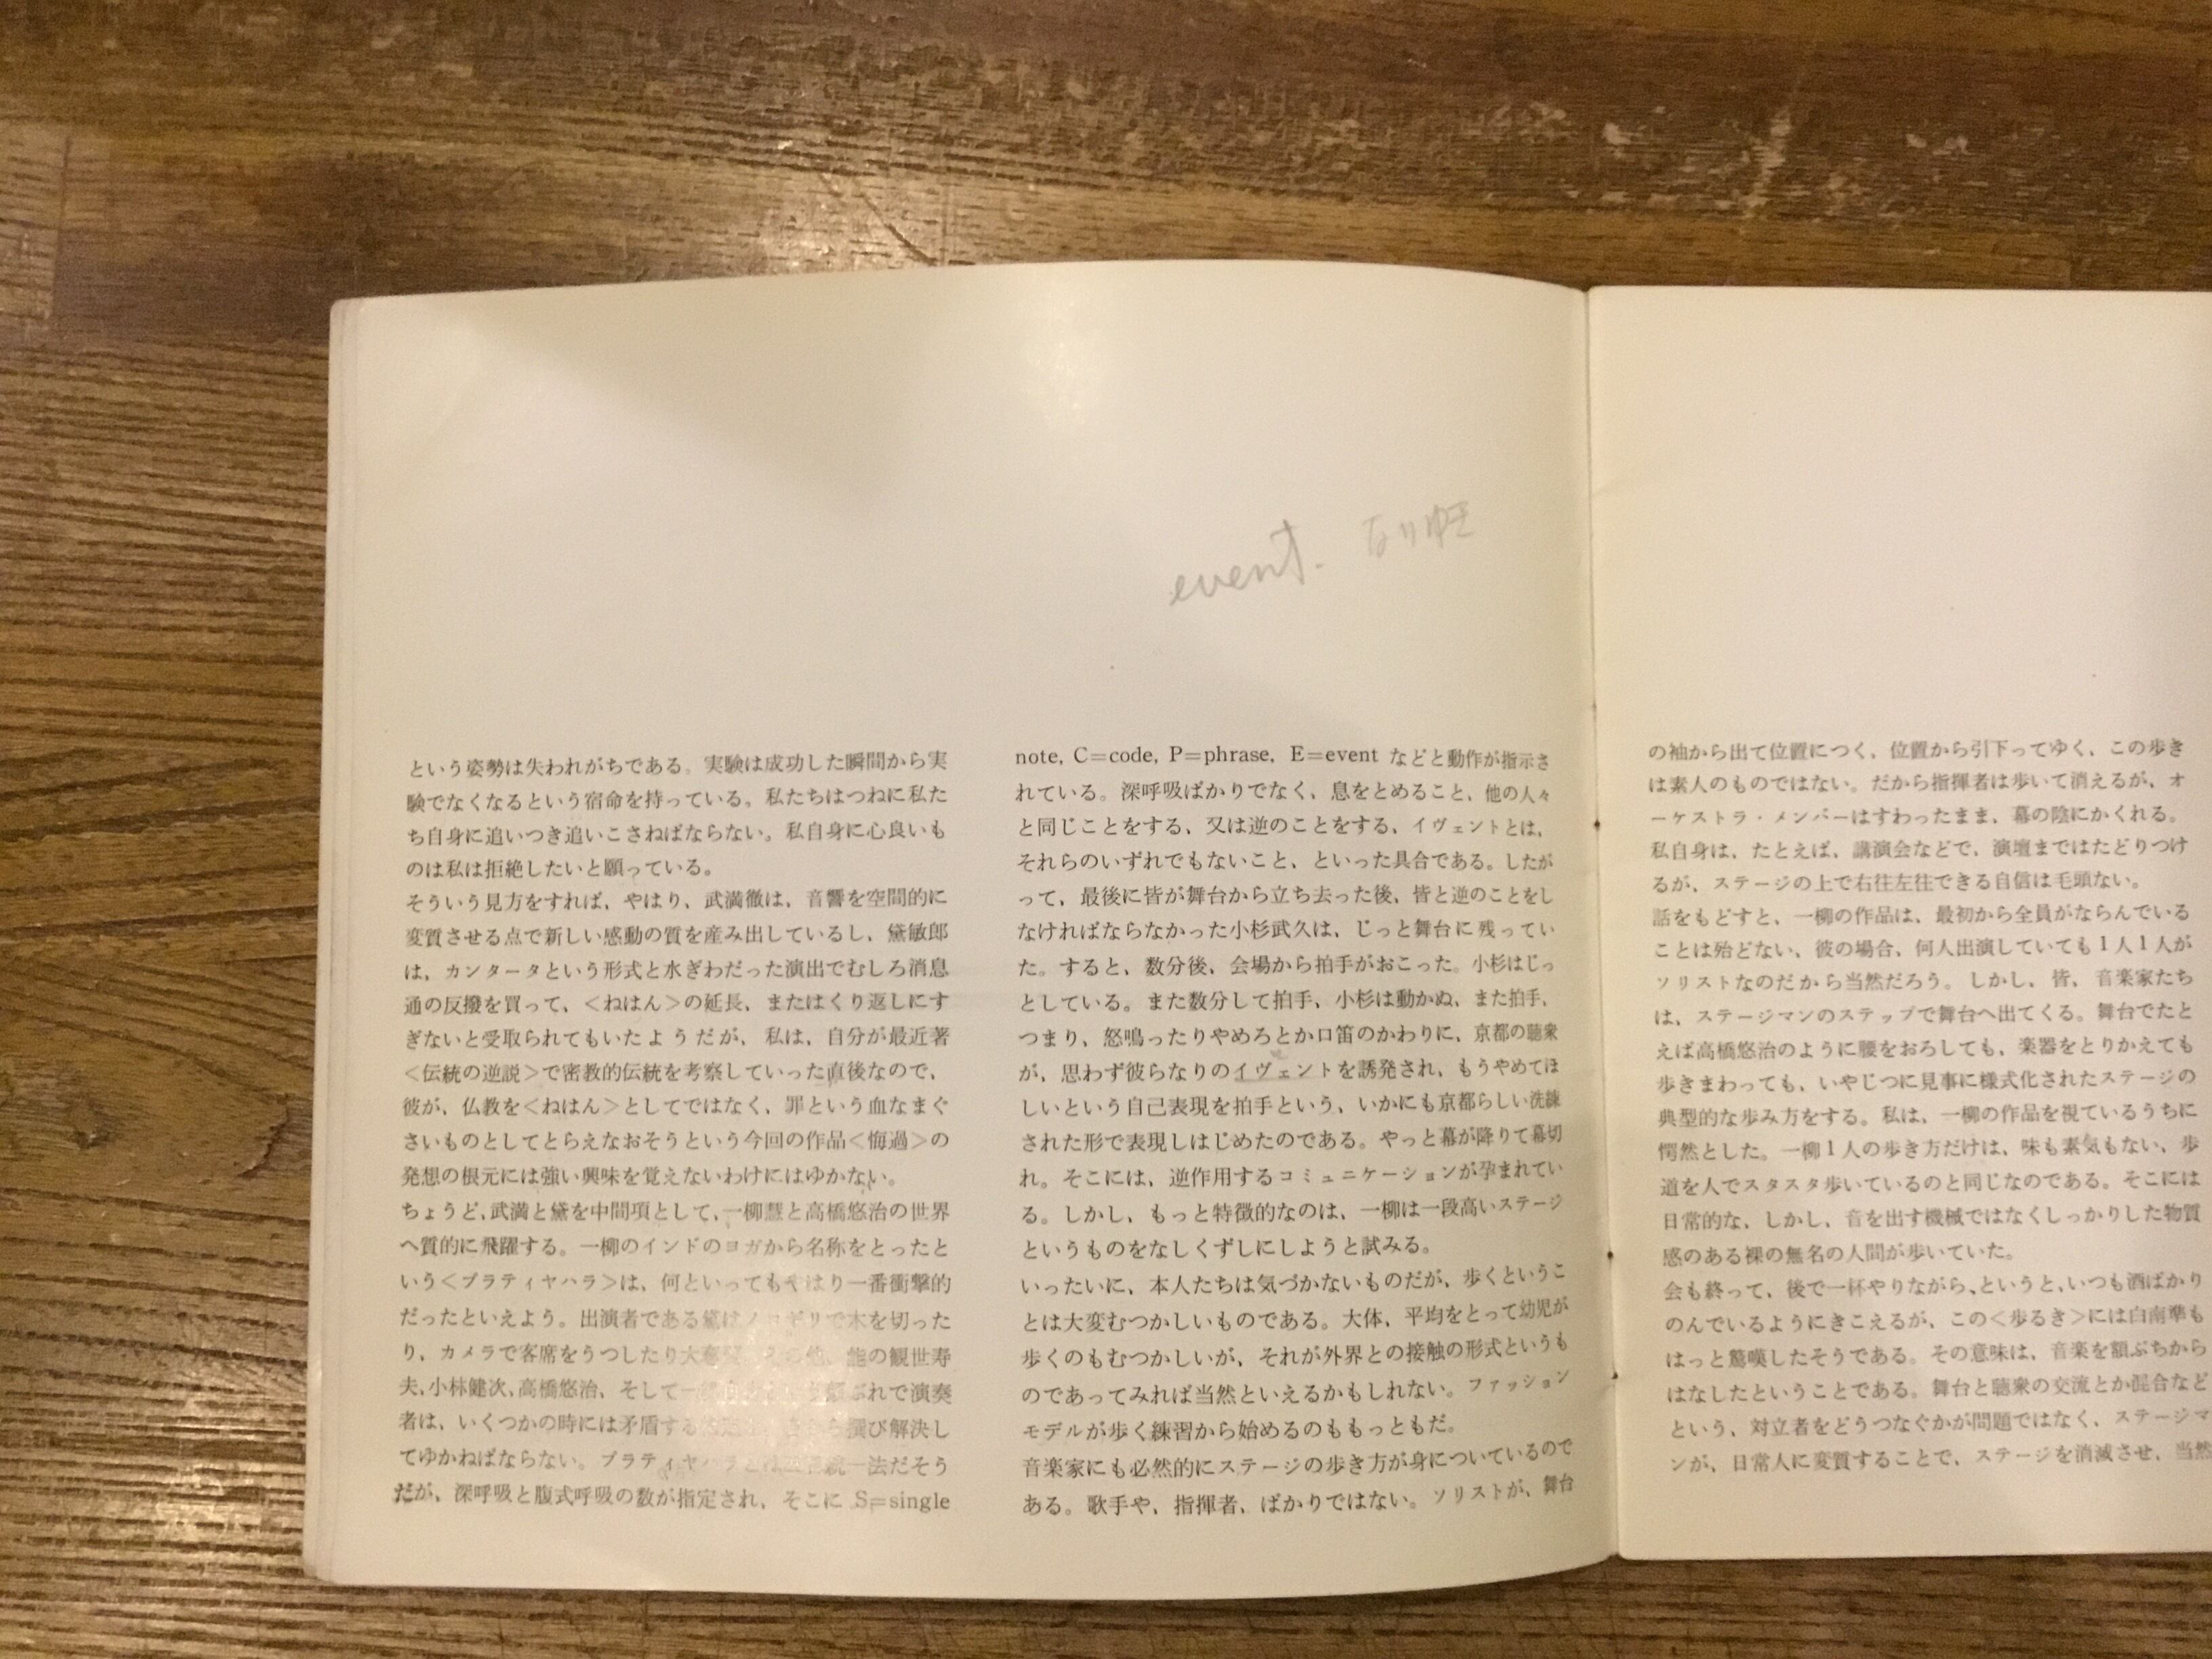 event. なりゆき
という姿勢は失われがちである。実験は成功した瞬間から実
験でなくなるという宿命を持っている。私たちはつねに私た
ち自身に追いつき追いこさねばならない。私自身に心良いも
のは私は拒絶したいと願っている。
そういう見方をすれば、やはり、武満徹は、音響を空間的に
変質させる点で新しい感動の質を産み出しているし、黛敏郎
は、カンタータという形式と水ぎわだった演出でむしろ消息
通の反撥を買って、＜ねはん＞の延長、またはくり返しにす
ぎないと受取られてもいたようだが、私は、自分が最近著
＜伝統の逆説＞で密教的伝統を考察していった直後なので、
彼が、仏教を＜ねはん＞としてではなく、罪という血なまぐ
さいものとしてとらえなおそうという今回の作品＜悔過＞の
発想の根元には強い興味を覚えないわけにはゆかない。
ちょうど、武満と黛を中間項として、一柳慧と高橋悠治の世界
へ質的に飛躍する。一柳のインドのヨガから名称をとったと
いう＜プラティヤハラ＞は、何といってもやはり一番衝撃的
だったといえよう。出演者である黛はノコギリで木を切った
り、カメラで客席をうつしたり大 能の観世寿
夫、小林健次、高橋悠治、そして一 ぶれで演奏
者は、いくつかの時には矛盾する 撰び解決し
てゆかねばならない。プラティヤハラとは 統一法だそう
だが、深呼吸と腹式呼吸の数が指定され、そこに S=single
note, C=code, P=phrase, E=event などと動作が指示さ
れている。深呼吸ばかりでなく、息をとめること、他の人々
と同じことをする、又は逆のことをする、イヴェントとは、
それらのいずれでもないこと、といった具合である。したが
って、最後に皆が舞台から立ち去った後、皆と逆のことをし
なければならなかった小杉武久は、じっと舞台に残ってい
た。すると、数分後、会場から拍手がおこった。小杉はじっ
としている。また数分して拍手、小杉は動かぬ、また拍手、
つまり、怒鳴ったりやめろとか口笛のかわりに、京都の聴衆
が、思わず彼らなりのイヴェントを誘発され、もうやめてほ
しいという自己表現を拍手という、いかにも京都らしい洗練
された形で表現しはじめたのである。やっと幕が降りて幕切
れ。そこには、逆作用するコミュニケーションが孕まれてい
る。しかし、もっと特徴的なのは、一柳は一段高いステージ
というものをなしくずしにしようと試みる。
いったいに、本人たちは気づかないものだが、歩くというこ
とは大変むつかしいものである。大体、平均をとって幼児が
歩くのもむつかしいが、それが外界との接触の形式というも
のであってみれば当然といえるかもしれない。ファッション
モデルが歩く練習から始めるのももっともだ。
音楽家にも必然的にステージの歩き方が身についているので
ある。歌手や、指揮者、ばかりではない。ソリストが、舞台
の袖から出て位置につく、位置から引下ってゆく、この歩き
は素人のものではない。だから指揮者は歩いて消えるが、オ
ーケストラ・メンバーはすわったまま、幕の陰にかくれる。
私自身は、たとえば、講演会などで、演壇まではたどりつけ
るが、ステージの上で右往左往できる自信は毛頭ない。
話をもどすと、一柳の作品は、最初から全員がならんでいる
ことは殆どない、彼の場合、何人出演していても1人1人が
ソリストなのだから当然だろう。しかし、皆、音楽家たち
は、ステージマンのステップで舞台へ出てくる。舞台でたと
えば高橋悠治のように腰をおろしても、楽器をとりかえても
歩きまわっても、いやじつに見事に様式化されたステージの
典型的な歩み方をする。私は、一柳の作品を視ているうちに
愕然とした。一柳1人の歩き方だけは、味も素気もない、歩
道を人でスタスタ歩いているのと同じなのである。そこには
日常的な、しかし、音を出す機械ではなくしっかりした物質
感のある裸の無名の人間が歩いていた。
会も終って、後で一杯やりながら、というと、いつも酒ばかり
のんでいるようにきこえるが、この＜歩るき＞には白南準も
はっと驚嘆したそうである。その意味は、音楽を額ぶちから
はなしたということである。舞台と聴衆の交流とか混合など
という、対立者をどうつなぐかが問題ではなく、ステージマ
ンが、日常人に変質することで、ステージを消滅させ、当然